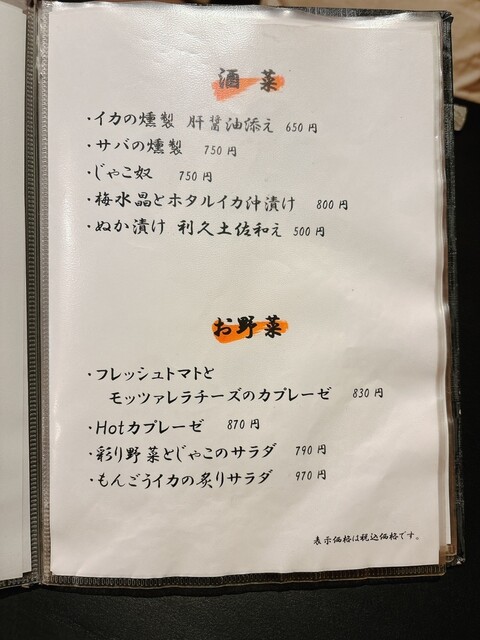 酒菜
・イカの燻製 肝醤油添え 650円
・サバの燻製 750円
・じゃこ奴 750円
・梅水晶とホタルイカ沖漬け 800円
・ぬか漬け 利久土佐和え 500円
お野菜
・フレッシュトマトと
モッツァレラチーズのカプレーゼ 830円
・Hotカプレーゼ 870円
・彩り野菜とじゃこのサラダ 790円
・もんごうイカの炙りサラダ 970円
表示価格は税込価格です。